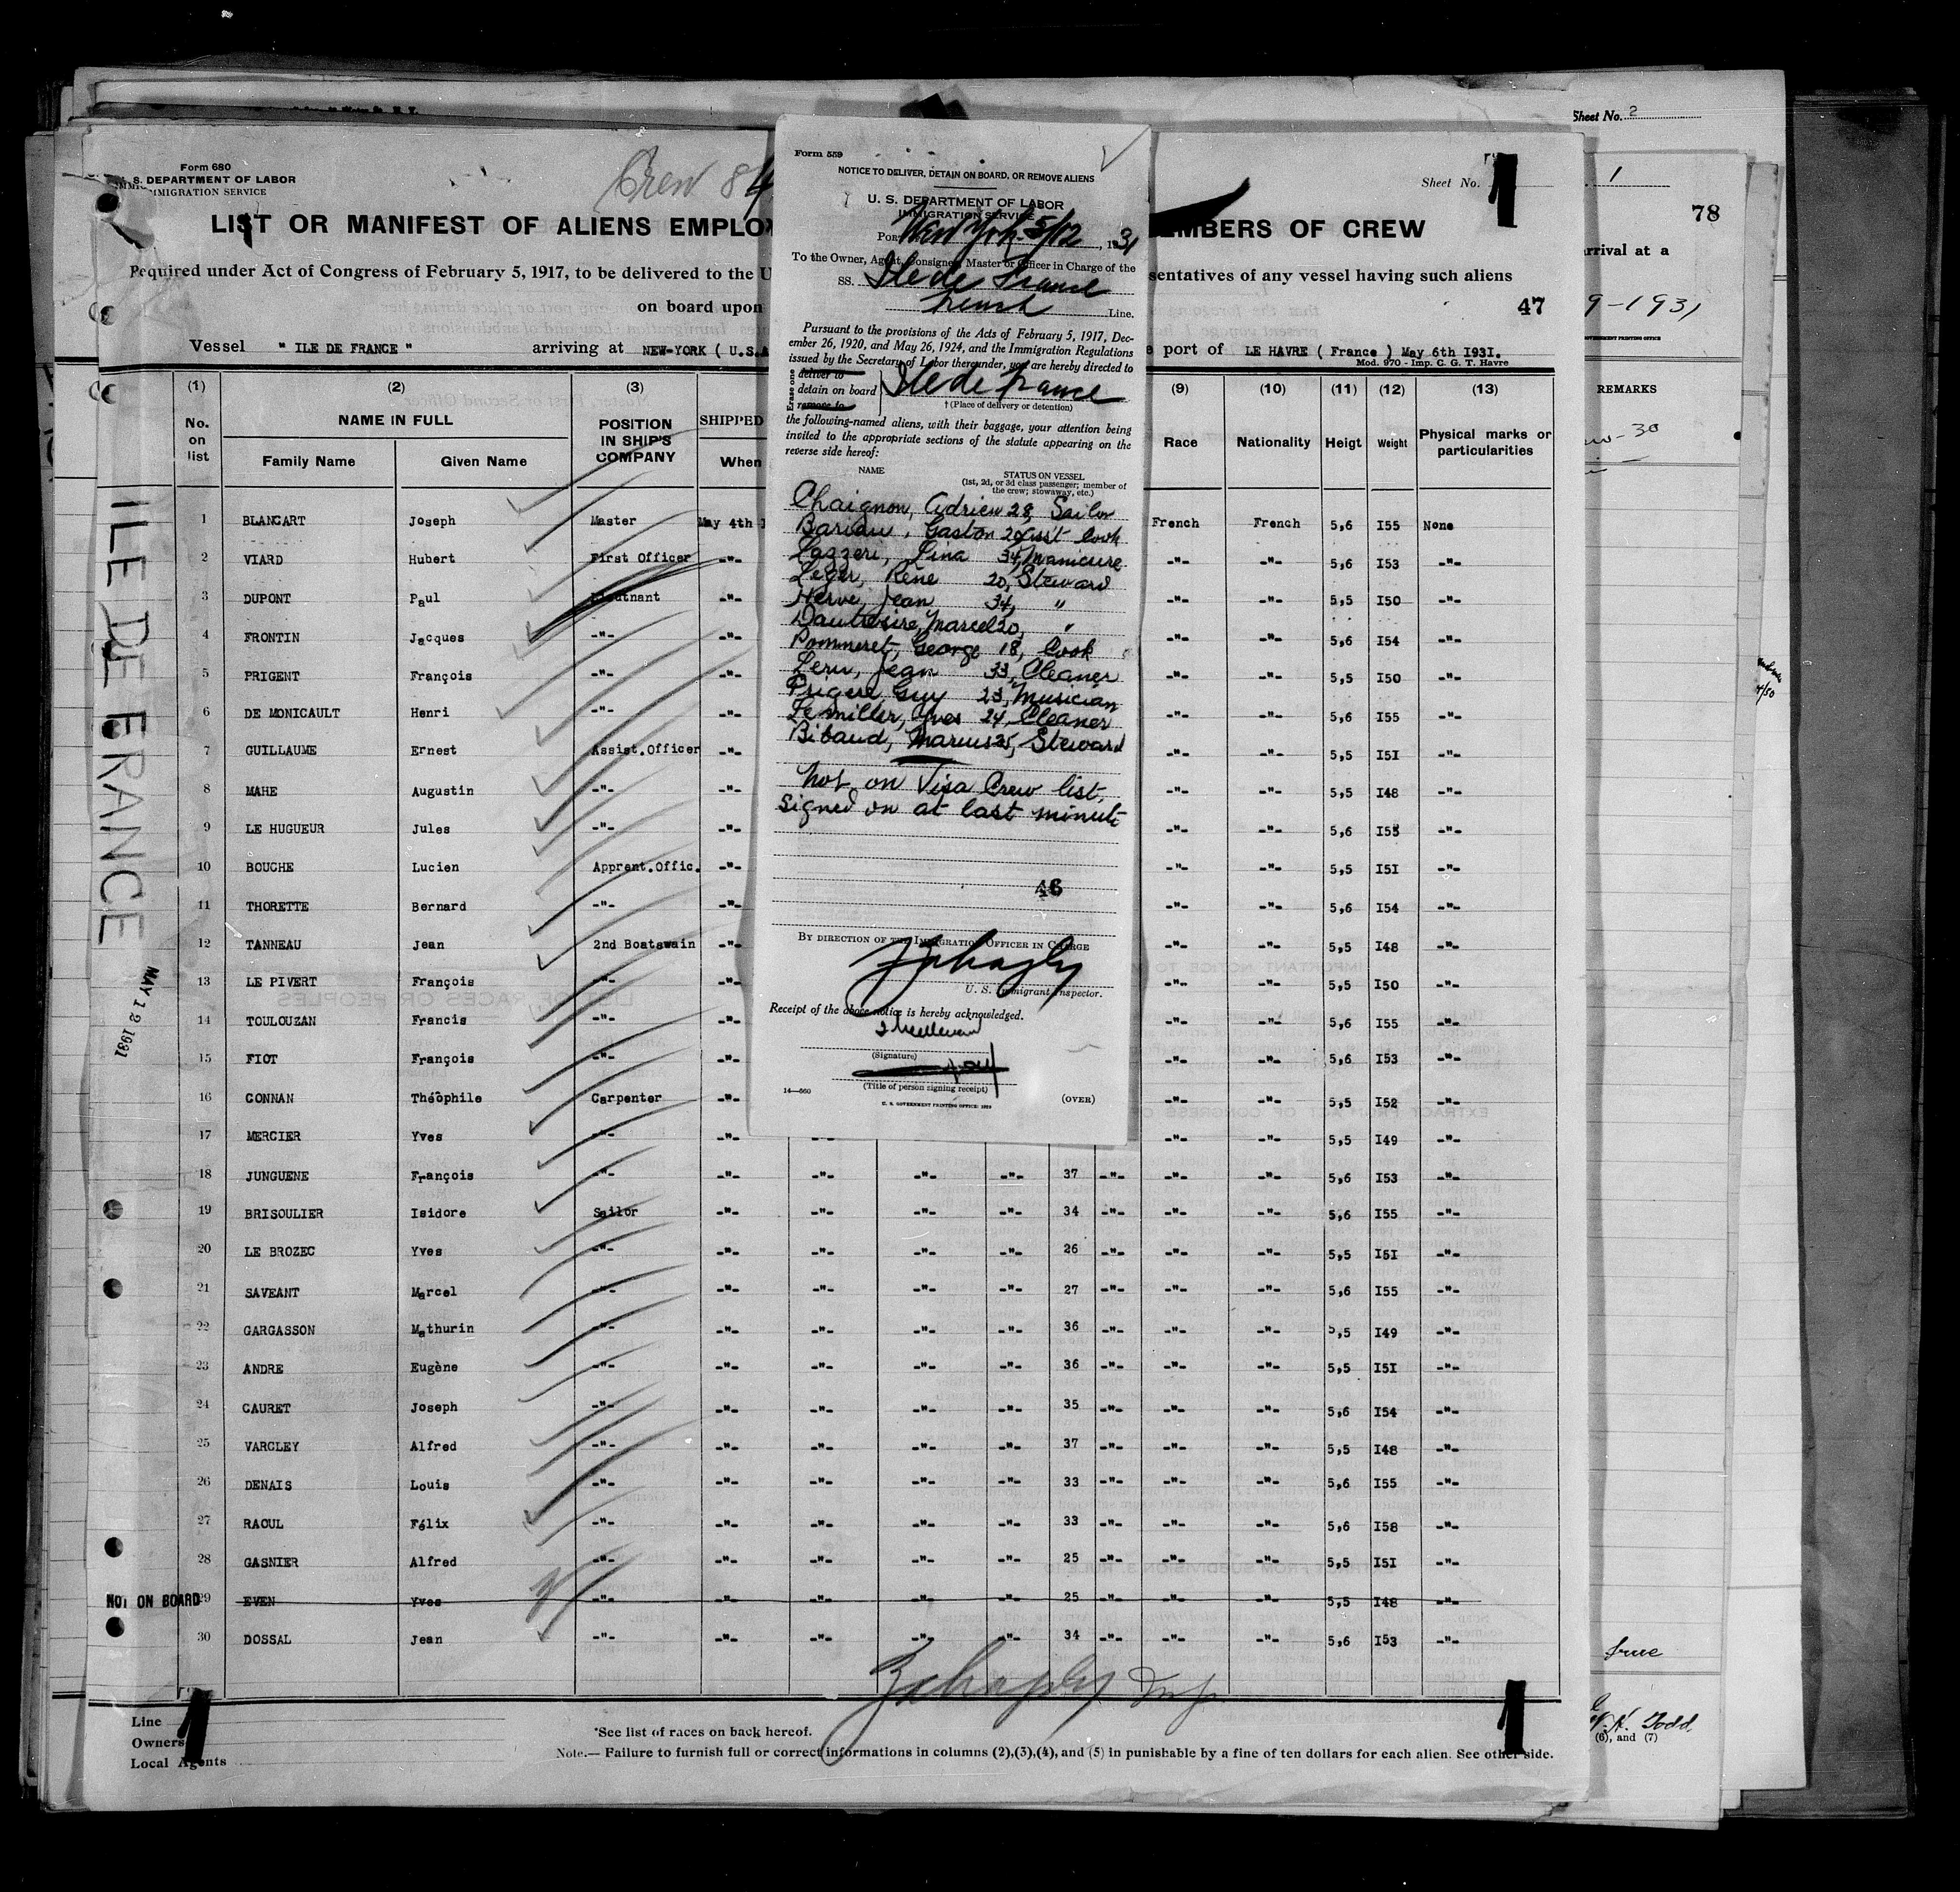 Sheet No. 2
1
78
rrival at a
9-1931
REMARKS
Form 680
S. DEPARTMENT OF LABOR
IMMIGRATION SERVICE
Crew 84
Sheet No. 1
LIST OR MANIFEST OF ALIENS EMPLO
EMBERS OF CREW
Required under Act of Congress of February 5, 1917, to be delivered to the U
sentatives of any vessel having such aliens
on board upon
47
Vessel " ILE DE FRANCE " arriving at NEW-YORK ( U.S.A
port of LE HAVRE ( France ) May 6th I93I.
Mod. 970 - Imp. C. G. T. Havre
(1) (2) (3) (9) (10) (11) (12) (13)
No. on list NAME IN FULL POSITION IN SHIP'S COMPANY SHIPPED Race Nationality Heigt Weight Physical marks or particularities
Family Name Given Name When
1 BLANCART Joseph Master May 4th French French 5,6 I55 None
2 VIARD Hubert First Officer -"- -"- -"- 5,6 I53 -"-
3 DUPONT Paul Lieutnant -"- -"- -"- 5,5 I50 -"-
4 FRONTIN Jacques -"- -"- -"- -"- 5,6 I54 -"-
5 PRIGENT François -"- -"- -"- -"- 5,5 I50 -"-
6 DE MONICAULT Henri -"- -"- -"- -"- 5,6 I55 -"-
7 GUILLAUME Ernest Assist.Officer -"- -"- -"- 5,5 I5I -"-
8 MAHE Augustin -"- -"- -"- -"- 5,5 I48 -"-
9 LE HUGUEUR Jules -"- -"- -"- -"- 5,6 I55 -"-
10 BOUCHE Lucien Apprent.Offic. -"- -"- -"- 5,5 I5I -"-
11 THORETTE Bernard -"- -"- -"- -"- 5,6 I54 -"-
12 TANNEAU Jean 2nd Boatswain -"- -"- -"- 5,5 I48 -"-
13 LE PIVERT François -"- -"- -"- -"- 5,5 I50 -"-
14 TOULOUZAN Francis -"- -"- -"- -"- 5,6 I55 -"-
15 FIOT François -"- -"- -"- -"- 5,6 I53 -"-
16 CONNAN Théophile Carpenter -"- -"- -"- 5,5 I52 -"-
17 MERCIER Yves -"- -"- -"- -"- -"- -"- -"- -"- 5,5 I49 -"-
18 JUNGUENE François -"- -"- -"- -"- -"- 37 -"- -"- -"- 5,6 I53 -"-
19 BRISOULIER Isidore Sailor -"- -"- -"- -"- 34 -"- -"- -"- 5,6 I55 -"-
20 LE BROZEC Yves -"- -"- -"- -"- -"- 26 -"- -"- -"- 5,5 I5I -"-
21 SAVEANT Marcel -"- -"- -"- -"- -"- 27 -"- -"- -"- 5,6 I55 -"-
22 GARGASSON Mathurin -"- -"- -"- -"- -"- 36 -"- -"- -"- 5,5 I49 -"-
23 ANDRE Eugène -"- -"- -"- -"- -"- 36 -"- -"- -"- 5,5 I5I -"-
24 CAURET Joseph -"- -"- -"- -"- -"- 35 -"- -"- -"- 5,6 I54 -"-
25 VARCLEY Alfred -"- -"- -"- -"- -"- 37 -"- -"- -"- 5,5 I48 -"-
26 DENAIS Louis -"- -"- -"- -"- -"- 33 -"- -"- -"- 5,6 I55 -"-
27 RAOUL Félix -"- -"- -"- -"- -"- 33 -"- -"- -"- 5,6 I58 -"-
28 GASNIER Alfred -"- -"- -"- -"- -"- 25 -"- -"- -"- 5,5 I5I -"-
NOT ON BOARD 29 EVEN Yves -"- -"- -"- -"- -"- 25 -"- -"- -"- 5,5 I48 -"-
30 DOSSAL Jean -"- -"- -"- -"- -"- 34 -"- -"- -"- 5,6 I53 -"-
Line
Owners
Local Agents
*See list of races on back hereof.
Note.— Failure to furnish full or correct informations in columns (2),(3),(4), and (5) in punishable by a fine of ten dollars for each alien. See other side.
ILE DE FRANCE
MAY 12 1931
Form 559
NOTICE TO DELIVER, DETAIN ON BOARD, OR REMOVE ALIENS
U. S. DEPARTMENT OF LABOR
IMMIGRATION SERVICE
Port New York 5/12, 1931
To the Owner, Agent, Consignee, Master or Officer in Charge of the
SS. Ile de France
French Line.
Pursuant to the provisions of the Acts of February 5, 1917, Dec-
ember 26, 1920, and May 26, 1924, and the Immigration Regulations
issued by the Secretary of Labor thereunder, you are hereby directed to
Erase one
deliver to
detain on board Ile de France
remove to
† (Place of delivery or detention)
the following-named aliens, with their baggage, your attention being
invited to the appropriate sections of the statute appearing on the
reverse side hereof:
NAME STATUS ON VESSEL
(1st, 2d, or 3d class passenger; member of
the crew; stowaway, etc.)
Chaignon, Adrien 28, Sailor
Bareau, Gaston 20 Ass't Cook
Lazzeri, Lina 34, Manicure
Leger, Rene 20, Steward
Herve, Jean 34, "
Dautresire, Marcel 20, "
Pommeret, George 18, Cook
Leru, Jean 33, Cleaner
Prigere Guy 23, Musician
Le miller, Yves 24, Cleaner
Bibaud, Marius 25, Steward
not on Visa Crew list,
signed on at last minute
46
BY DIRECTION OF THE IMMIGRATION OFFICER IN CHARGE
U. S. Immigrant Inspector.
Receipt of the above notice is hereby acknowledged.
(Signature)
(Title of person signing receipt)
14—560
U. S. GOVERNMENT PRINTING OFFICE: 1929
(OVER)
true
W. H. Todd
(6), and (7)